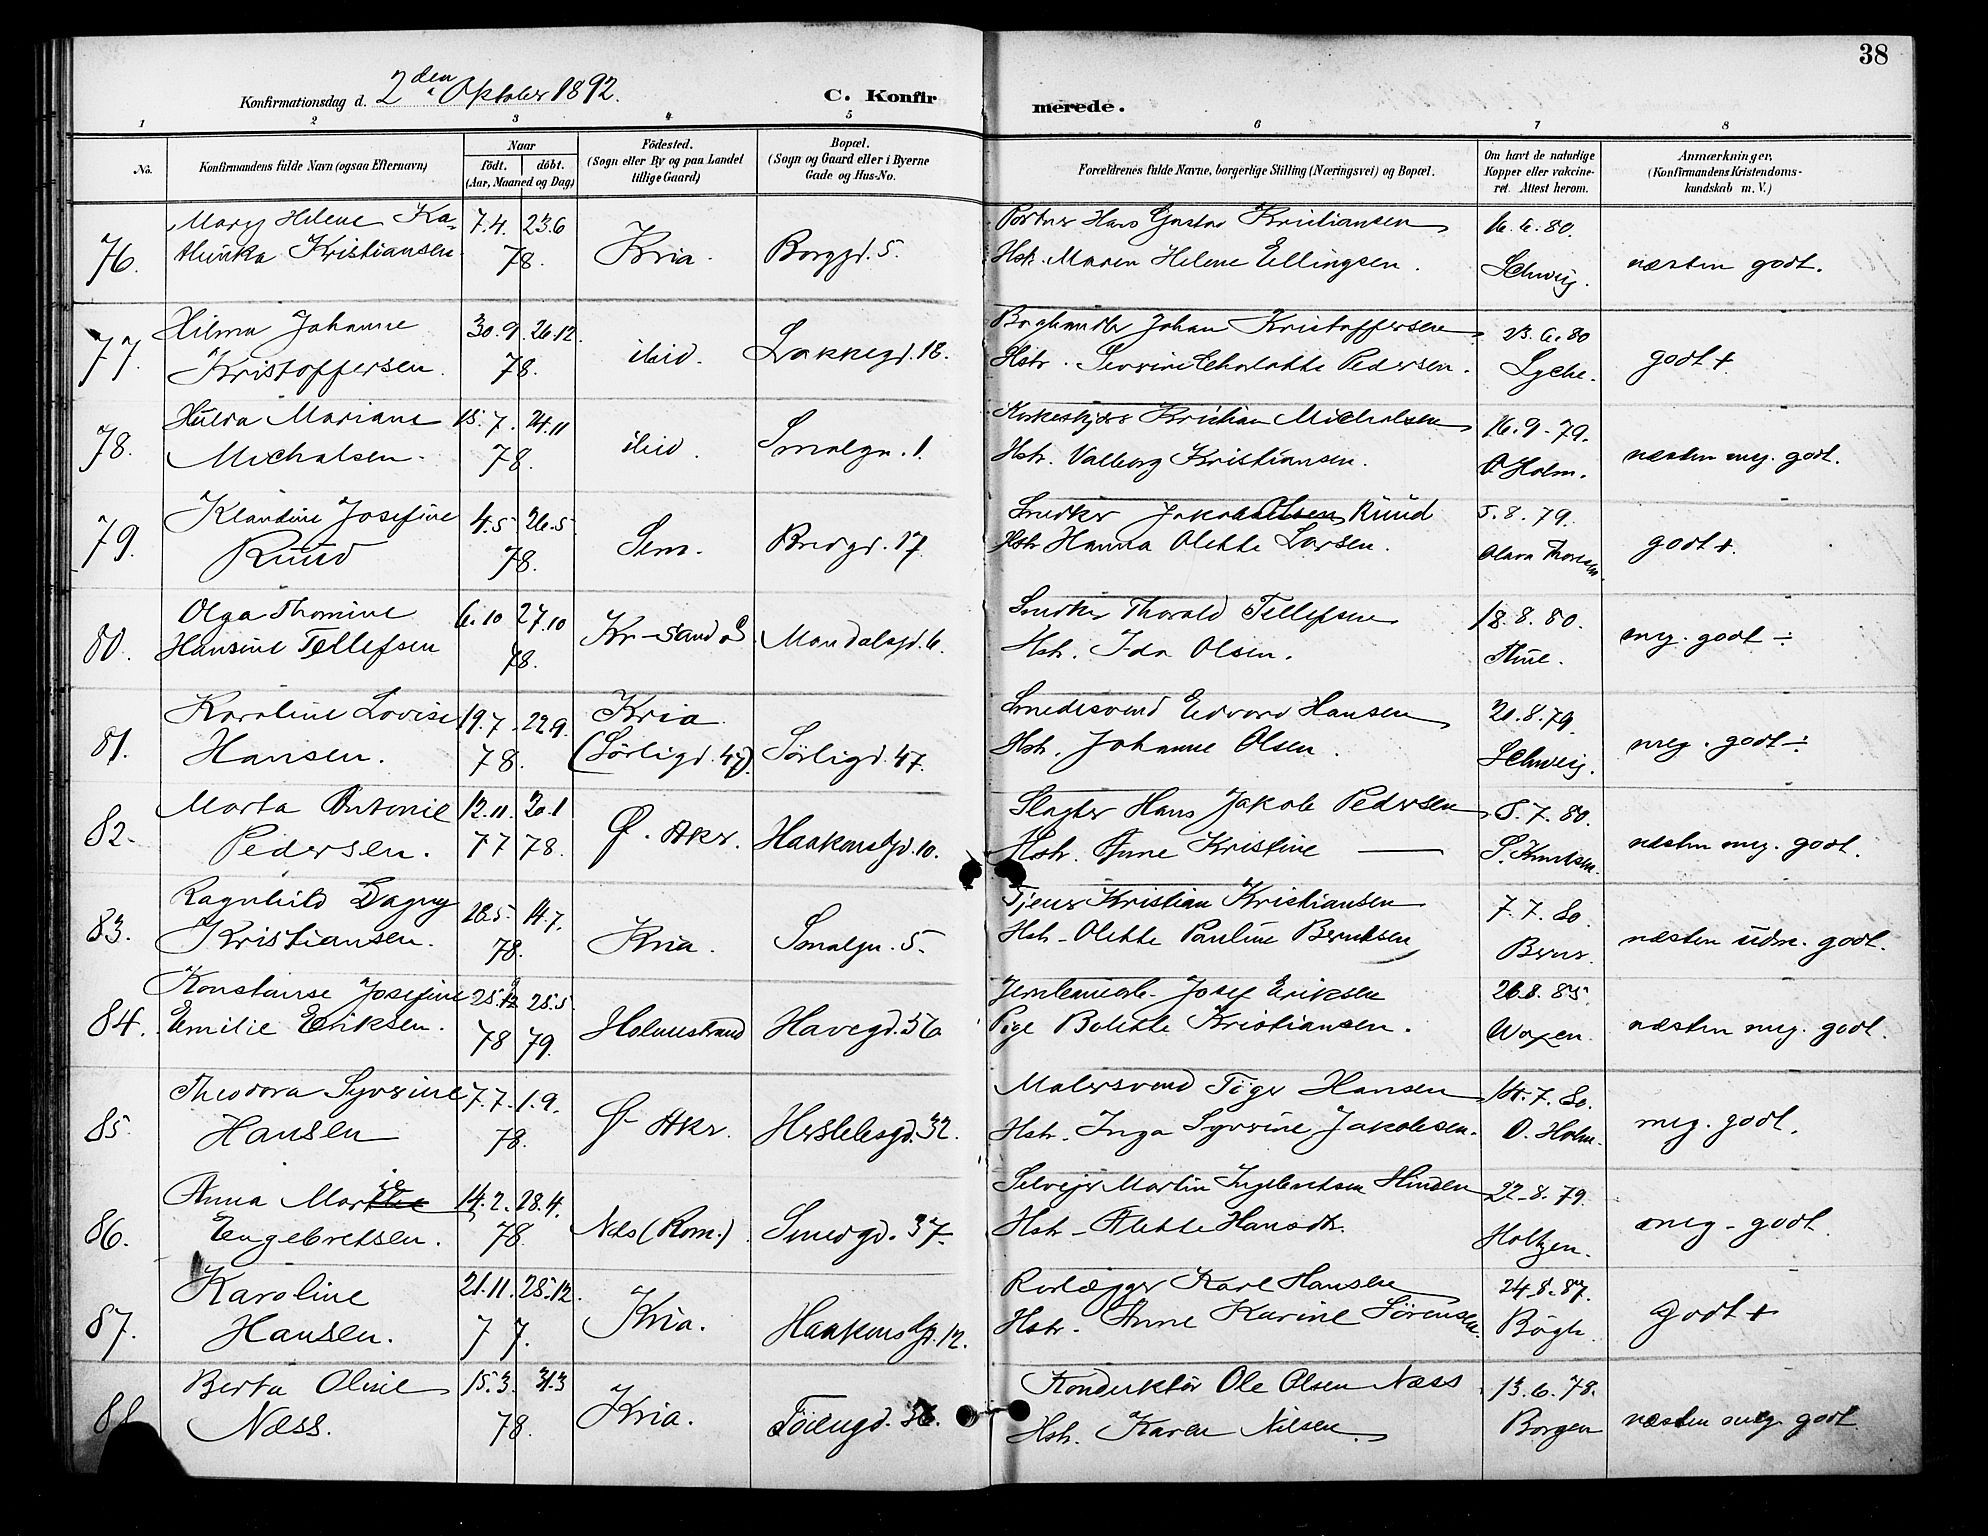 38
Konfirmationsdag d. 2den Oktober 1892. C. Konfirmerede.
1 2 3 4 5 6 7 8
No. Konfirmandens fulde Navn (ogsaa Efternavn) Naar födt. döbt. (Aar, Maaned og Dag) Födested. (Sogn eller By og paa Landet tillige Gaard) Bopæl. (Sogn og Gaard eller i Byerne Gade og Hus-No. Forældrenes fulde Navne, borgerlige Stilling (Næringsvei) og Bopæl. Om havt de naturlige Kopper eller vaccineret. Attest herom. Anmærkninger. (Konfirmandens Kristendomskundskab m. V.)
Mary Helene Ka- 7.4. 23.6 Portner Hans Gustav Kristiansen 16.6.80.
76. thinka Kristiansen 78. Kria. Borggd. 5. Hstr. Maren Helene Ellingsen. Schweig. næsten godt.
Hilma Johanne 30.9 26.12. Johan Kristoffersen 23.6.80
77. Kristoffersen. 78. ibid. Lakkegd. 18. Hstr. Severine Charlotte Pedersen. Lyche. godt +
Hulda Mariane 15.7. 24.11 Kristian Michalsen 16.9.79.
78. Michalsen. 78. ibid. Smalgn. 1. Hstr. Valborg Kristiansen. O. Holm. næsten meg. godt.
Klaudine Josefine 4.5 26.5 Snedker Jakob Olsen Ruud 5.8.79.
79. Ruud 78. Sem. Bredgd. 17. Hstr Hanna Olette Larsen. Olava Thoresen. godt +.
Olga Thomine 6.10 27.10 Snedker Thorald Tellefsen 18.8.80.
80. Hansine Tellefsen 78. Kr-sand Mandalsgd. 6. Hstr. Ida Olsen. Thue. meg. godt ÷
Karoline Lovise 19.7. 22.9. Kria Smedesvend Edvard Hansen 21.8.79.
81. Hansen. 78. (Sörligd. 47). Sörligd. 47. Hstr. Johanne Olsen. Schweig. meg. godt ÷
Marta Antonie 12.11. 20.1 Slagter Hans Jakob Pedersen 8.7.80.
82. Pedersen. 77 78. Ø. Aker. Haakonsgd. 10. Hstr. Anne Kristine — S. Knudsen. næsten meg. godt.
Ragnhild Dagny 26.5. 14.7. Tjener Kristian Kristiansen 7.7.80
83. Kristiansen. 78. Kria. Smalgn. 5. Hstr. Olette Pauline Berntsen Berner. næsten udm. godt.
Konstanse Josefine 25.12 25.5 Jernbanearb. Josef Eriksen 26.8.85.
84. Emilie Eriksen. 78 79. Holmestrand Havegd. 56 Pige Bolette Kristiansen. Woxen. næsten meg. godt.
Theodora Syverine 7.7. 1.9. Malersvend Tiger Hansen 14.7.80.
85 Hansen 78. Ø. Aker. Herslebsgd. 32. Hstr. Inga Syverine Jakobsen. O. Holm. meg. godt.
Anna Marie 14.2. 28.4. Selveier Martin Ingebretsen 22.8.79.
86. Engebretsen. 78. Nes (Rom.) Smedgd. 37. Hstr. Alette Hansdtr. Holtzen. meg. godt.
Karoline 21.11. 25.12. Rörlægger Karl Hansen 24.8.87.
87. Hansen. 77. Kria. Haakonsgd. 12. Hstr. Anne Karine Sörensen. Bögh. godt +
Berta Oline 15.3. 31.3 Konduktör Ole Olsen Næss 13.6.78.
88 Næss. 78. Kria. Töiengd. 36. Hstr. Karen Nilsen. Borgen næsten meg. godt